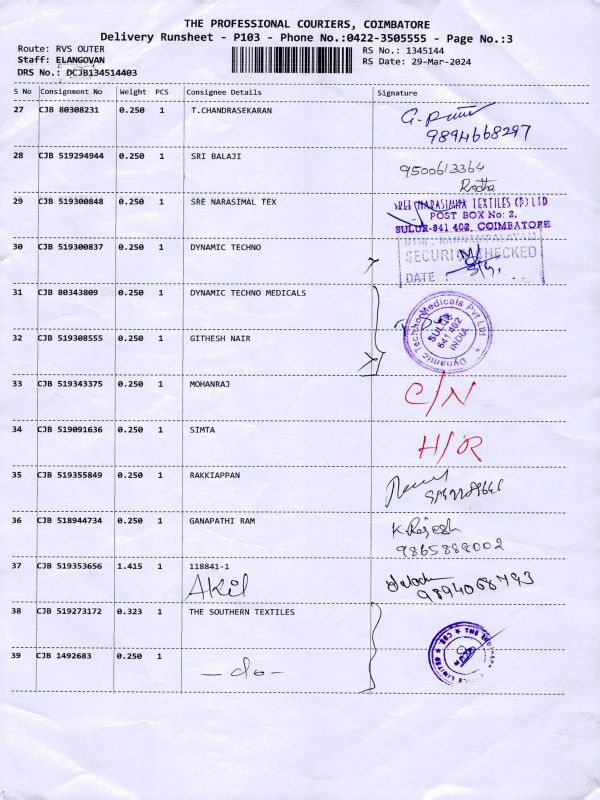 THE PROFESSIONAL COURIERS, COIMBATORE
Delivery Runsheet - P103 - Phone No.:0422-3505555 - Page No.:3
Route: RVS OUTER RS No.: 1345144
Staff: ELANGOVAN RS Date: 29-Mar-2024
DRS No.: DCJB134514403
S No Consignment No Weight PCS Consignee Details Signature
27 CJB 80308231 0.250 1 T.CHANDRASEKARAN
9894668297
28 CJB 519294944 0.250 1 SRI BALAJI
9500613364
Radha
29 CJB 519300848 0.250 1 SRE NARASIMAL TEX
SREE NARASIMHA TEXTILES (P) LTD
POST BOX No: 2,
SULUR-641 402, COIMBATORE
30 CJB 519300837 0.250 1 DYNAMIC TECHNO
SECURITY CHECKED
DATE
31 CJB 80343809 0.250 1 DYNAMIC TECHNO MEDICALS
Dynamic Techno Medicals Pvt Ltd
SULUR
641 402
INDIA
32 CJB 519308555 0.250 1 GITHESH NAIR
33 CJB 519343375 0.250 1 MOHANRAJ
C/N
34 CJB 519091636 0.250 1 SIMTA
H/R
35 CJB 519355849 0.250 1 RAKKIAPPAN
36 CJB 518944734 0.250 1 GANAPATHI RAM
K.Rajesh
9865888002
37 CJB 519353656 1.415 1 118841-1
Akil
9894068793
38 CJB 519273172 0.323 1 THE SOUTHERN TEXTILES
39 CJB 1492683 0.250 1
- do -